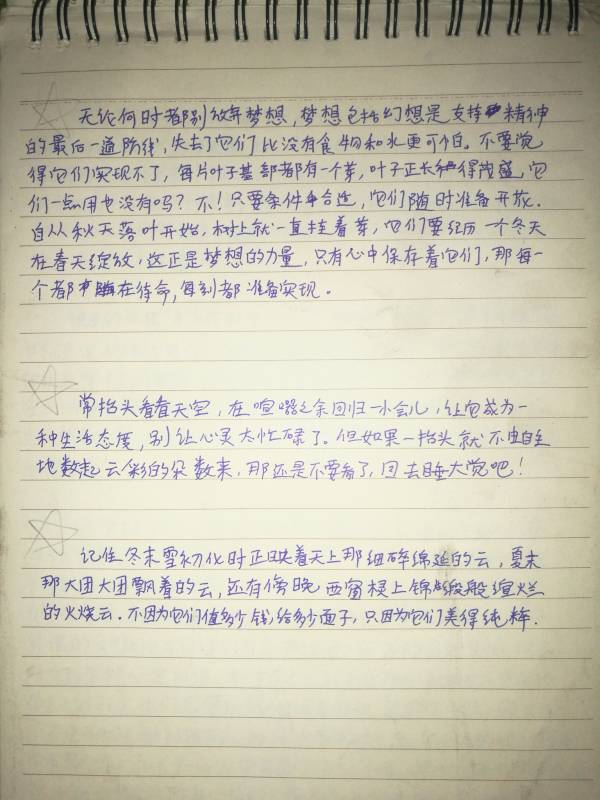 无论何时都别放弃梦想,梦想包括幻想是支持精神
的最后一道防线,失去了它们比没有食物和水更可怕。不要觉
得它们实现不了,每片叶子基部都有一个芽,叶子正长得茂盛,它
们一点用也没有吗?不!只要条件合适,它们随时准备开放.
自从秋天落叶开始,树上就一直挂着芽,它们要经历一个冬天
在春天绽放,这正是梦想的力量,只有心中保存着它们,那每一
个都在待命,每刻都准备实现。
常抬头看看天空,在喧嚣之余回归一小会儿,让它成为一
种生活态度,别让心灵太忙碌了。但如果一抬头就不由自主
地数起云彩的朵数来,那还是不要看了,回去睡大觉吧!
记住冬末雪初化时正映着天上那细碎绵延的云,夏末
那大团大团飘着的云,还有傍晚西窗棂上锦缎般绚烂
的火烧云.不因为它们值多少钱,给多少面子,只因为它们美得纯粹.